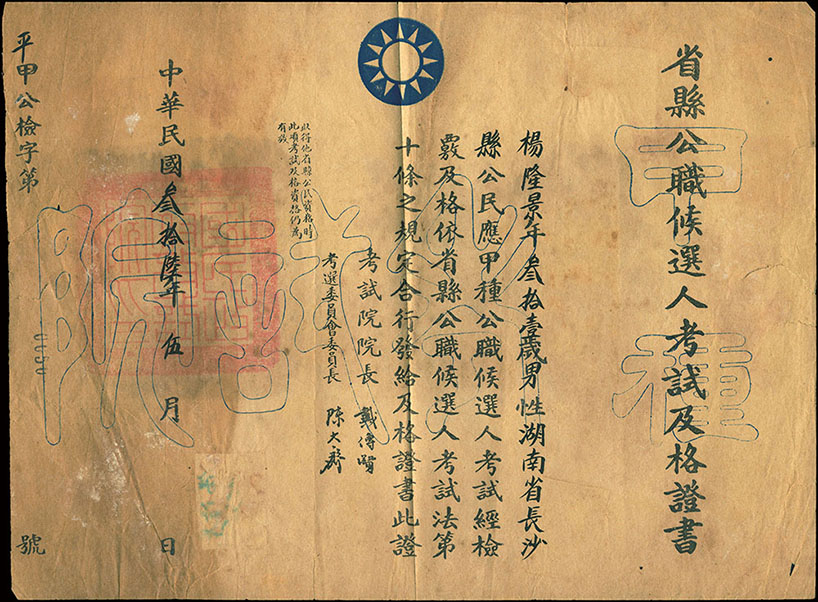 省縣公職候選人考試及格證書
楊隆景年叁拾壹歲男性湖南省長沙
縣公民應甲種公職候選人考試經檢
覈及格依省縣公職候選人考試法第
十條之規定合行發給及格證書此證
考試院院長 戴傳賢
考選委員會委員長 陳大齊
取得他省縣公民資格時
此項考試及格資格仍為
有效
中華民國叁拾陸年伍月 日
平甲公檢字第 號
甲種
考試院